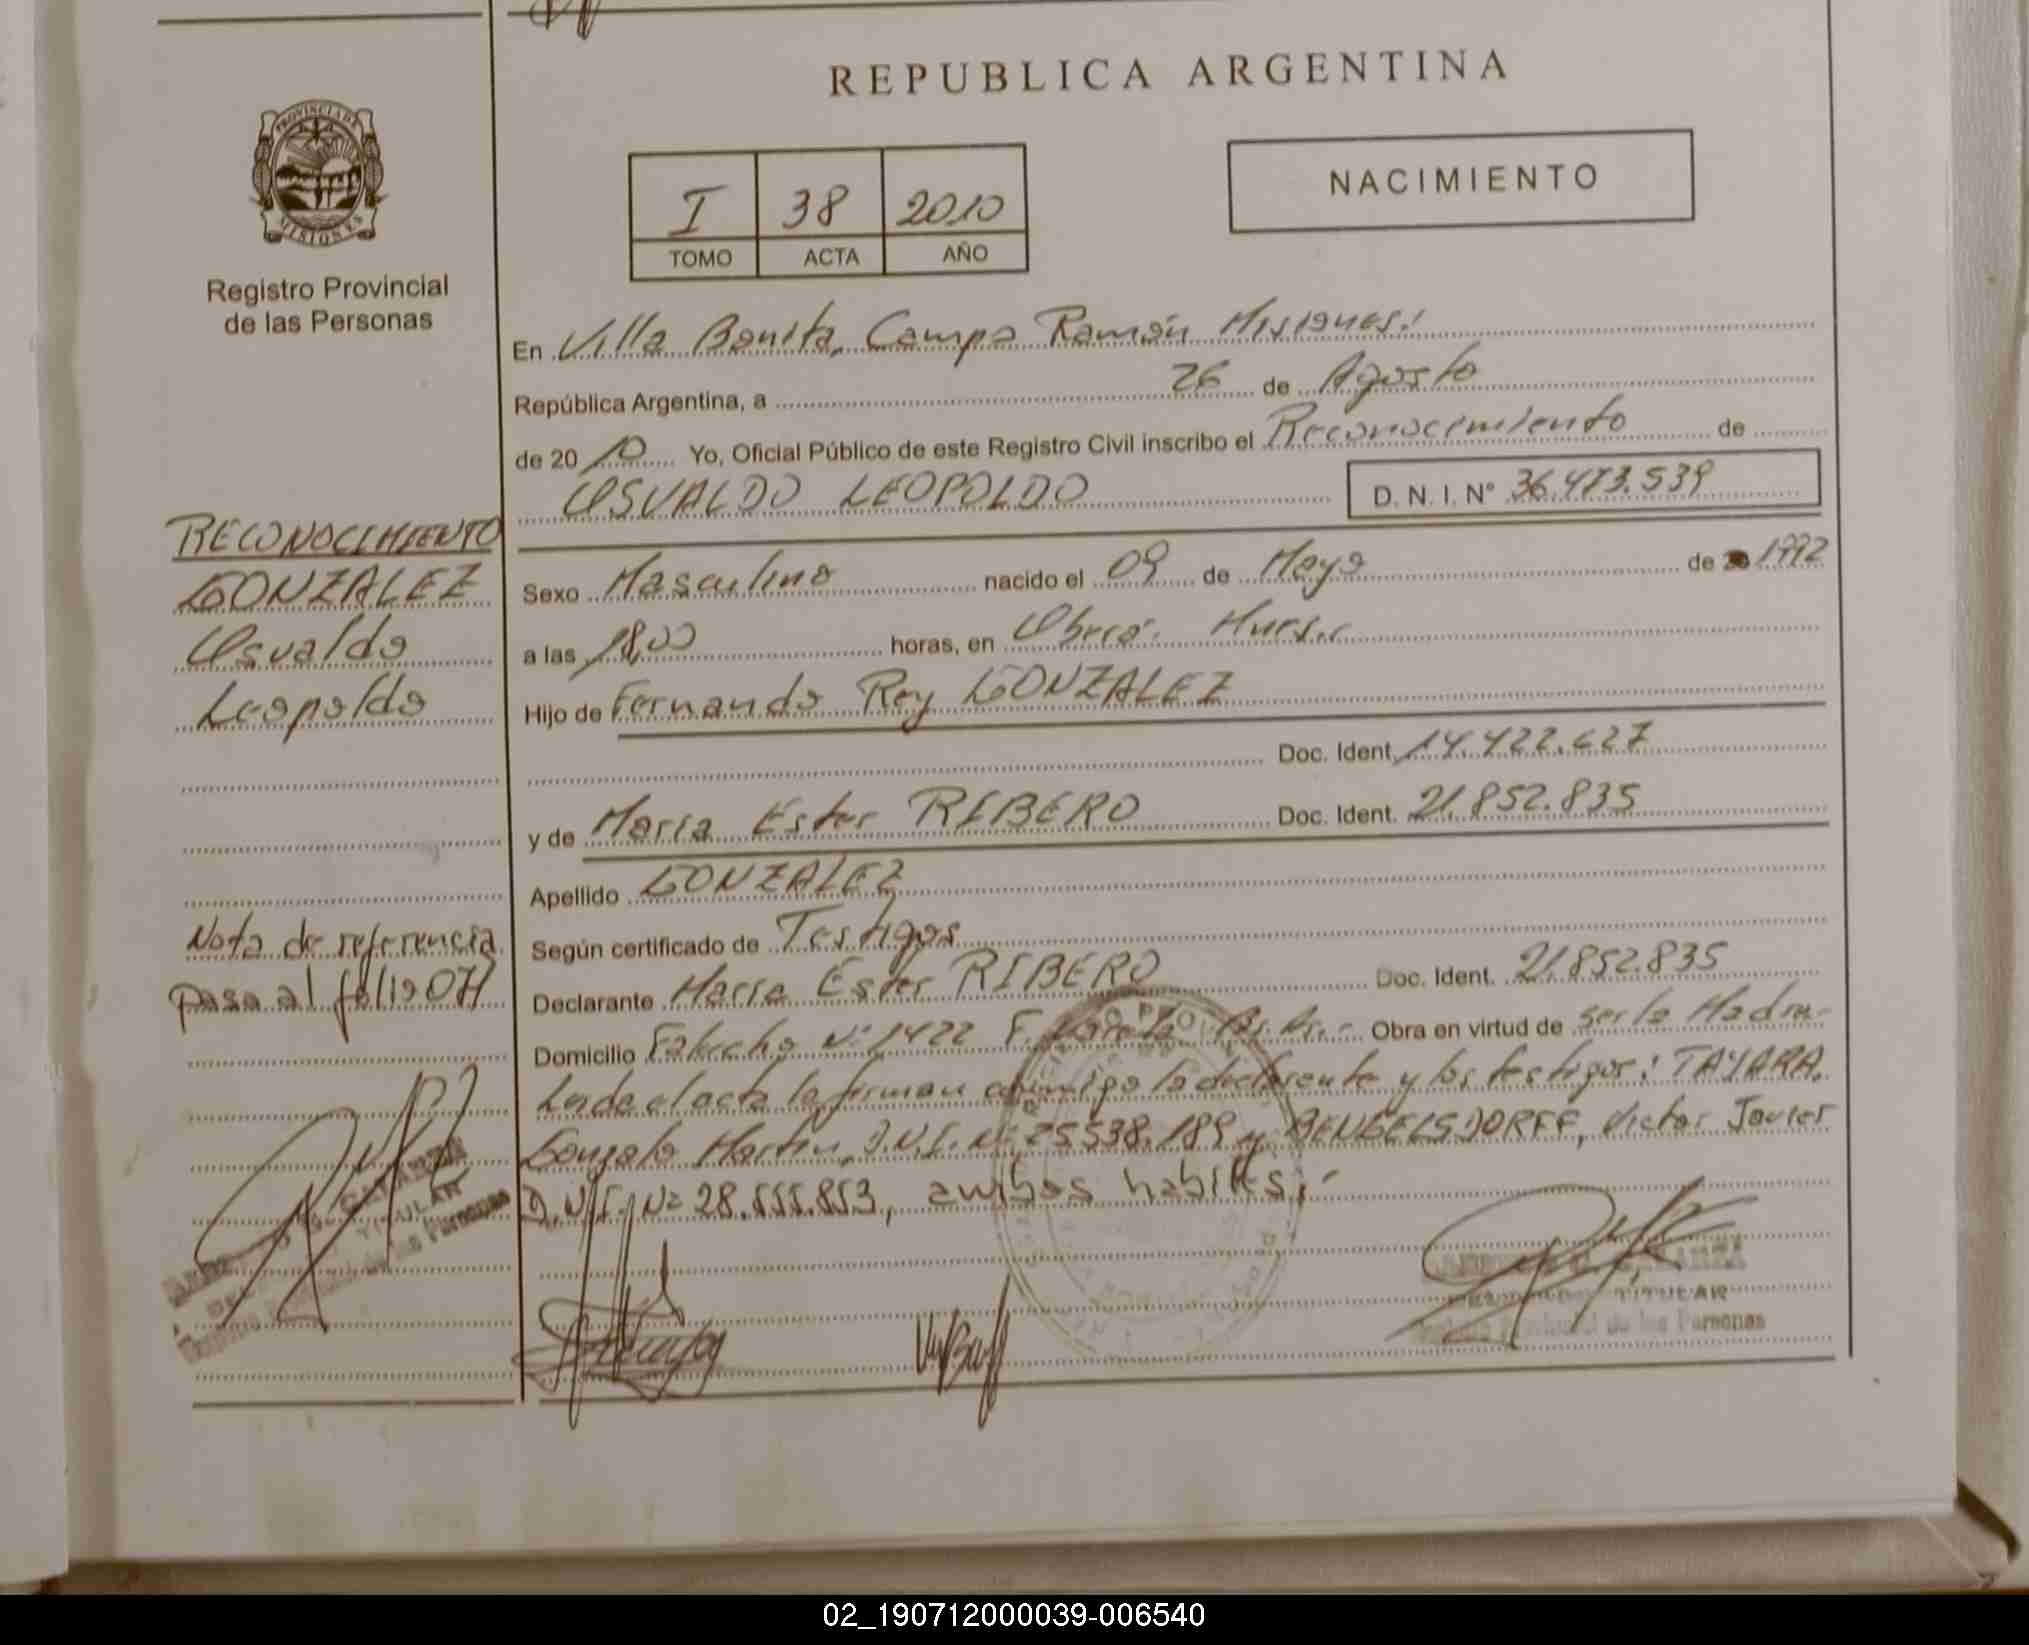 REPUBLICA ARGENTINA
NACIMIENTO
I 38 2010
TOMO ACTA AÑO
PROVINCIA DE
MISIONES
Registro Provincial
de las Personas
RECONOCIMIENTO
GONZALEZ
Osvaldo
Leopoldo
Nota de referencia
pasa al folio 07
En Villa Bonita, Campo Ramón Misiones.
República Argentina, a 26 de Agosto
de 2010 Yo, Oficial Público de este Registro Civil inscribo el Reconocimiento de
OSVALDO LEOPOLDO D.N.I. Nº 36.473.539
Sexo Masculino nacido el 09 de Mayo de 1992
a las 18,00 horas, en Oberá
Hijo de Fernando Rey GONZALEZ
Doc. Ident. 14.422.627
y de Maria Ester RIBERO Doc. Ident. 21.852.835
Apellido GONZALEZ
Según certificado de Testigos
Declarante Maria Ester RIBERO Doc. Ident. 21.852.835
Domicilio Nº 1422 F. Varela Bs. As.- Obra en virtud de ser la Madre-
Leida el acta la firman conmigo la declarante y los testigos: TAYARA,
Gonzalo Martin, D.N.I. Nº 25.538.189 y BENGELSDORFF, Victor Javier
D.N.I. Nº 28.555.853, ambos habiles.-
TITULAR
de las Personas
TITULAR
Provincial de las Personas
02_190712000039-006540